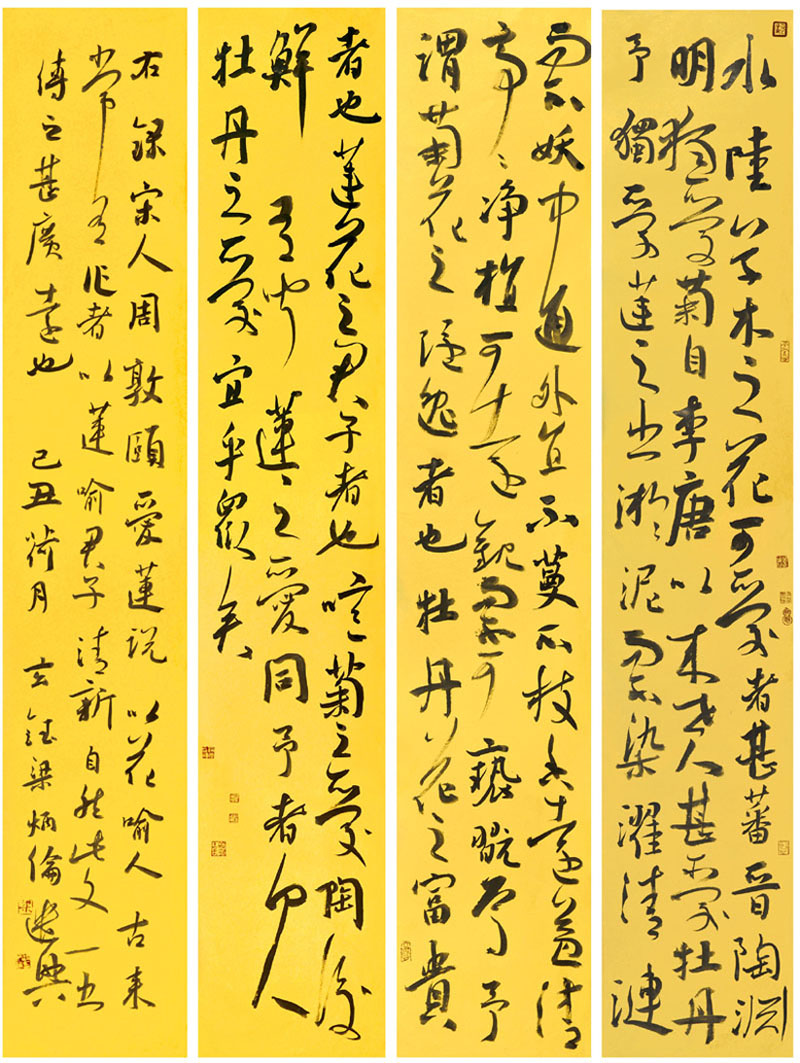 水陸草木之花可愛者甚蕃晉陶淵
明獨愛菊自李唐以來世人甚愛牡丹
予獨愛蓮之出淤泥而不染濯清漣
而不妖中通外直不蔓不枝香遠益清
亭〻淨植可遠觀而不可褻翫焉予
謂菊花之隱逸者也牡丹花之富貴
者也蓮花之君子者也噫菊之愛陶後
鮮有聞蓮之愛同予者何人
牡丹之愛宜乎眾矣
右錄宋人周敦頤愛蓮說以花喻人古來
常有作者以蓮喻君子清新自然此文一出
傳之甚廣遠也 己丑荷月 梁炳倫遣興